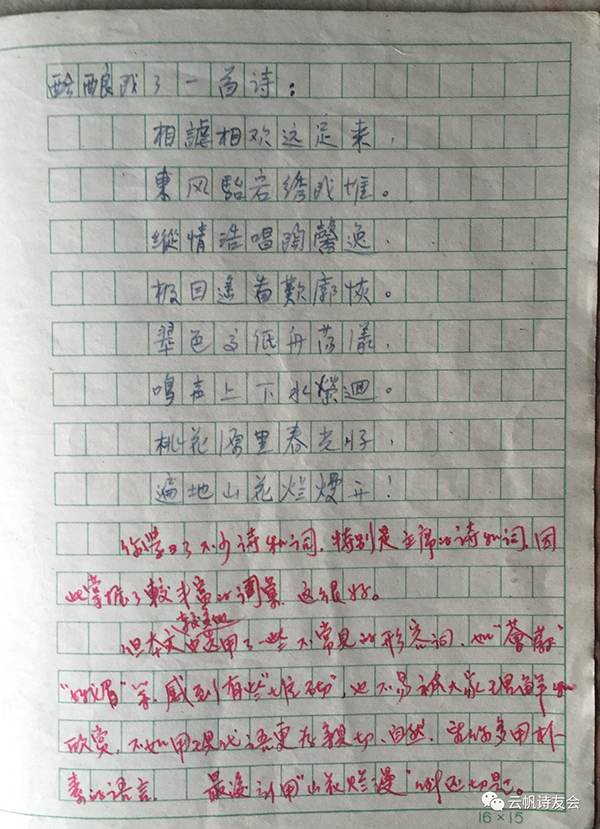 酝酿成了一首诗：
相謔相欢远足来，
東风駘宕绣成堆。
縱情浩唱陶馨逸，
极目遥看歎廓恢。
翠色高低舟荡漾，
鳴声上下水縈迴。
桃花源里春光好，
遍地山花烂熳开！
你学习了不少诗和词，特别是主席的诗和词，因
此掌握了较丰富的词彙，这很好。
但本文中选用了一些不常见的形容词，如“薈蔚”
等，感到有些“堆砌”，也不易被大家理解和
欣赏，不如用现代语更为亲切、自然，望你多用朴
素的语言。 最后引用“山花烂漫”时还切题。
云帆诗友会
16×15